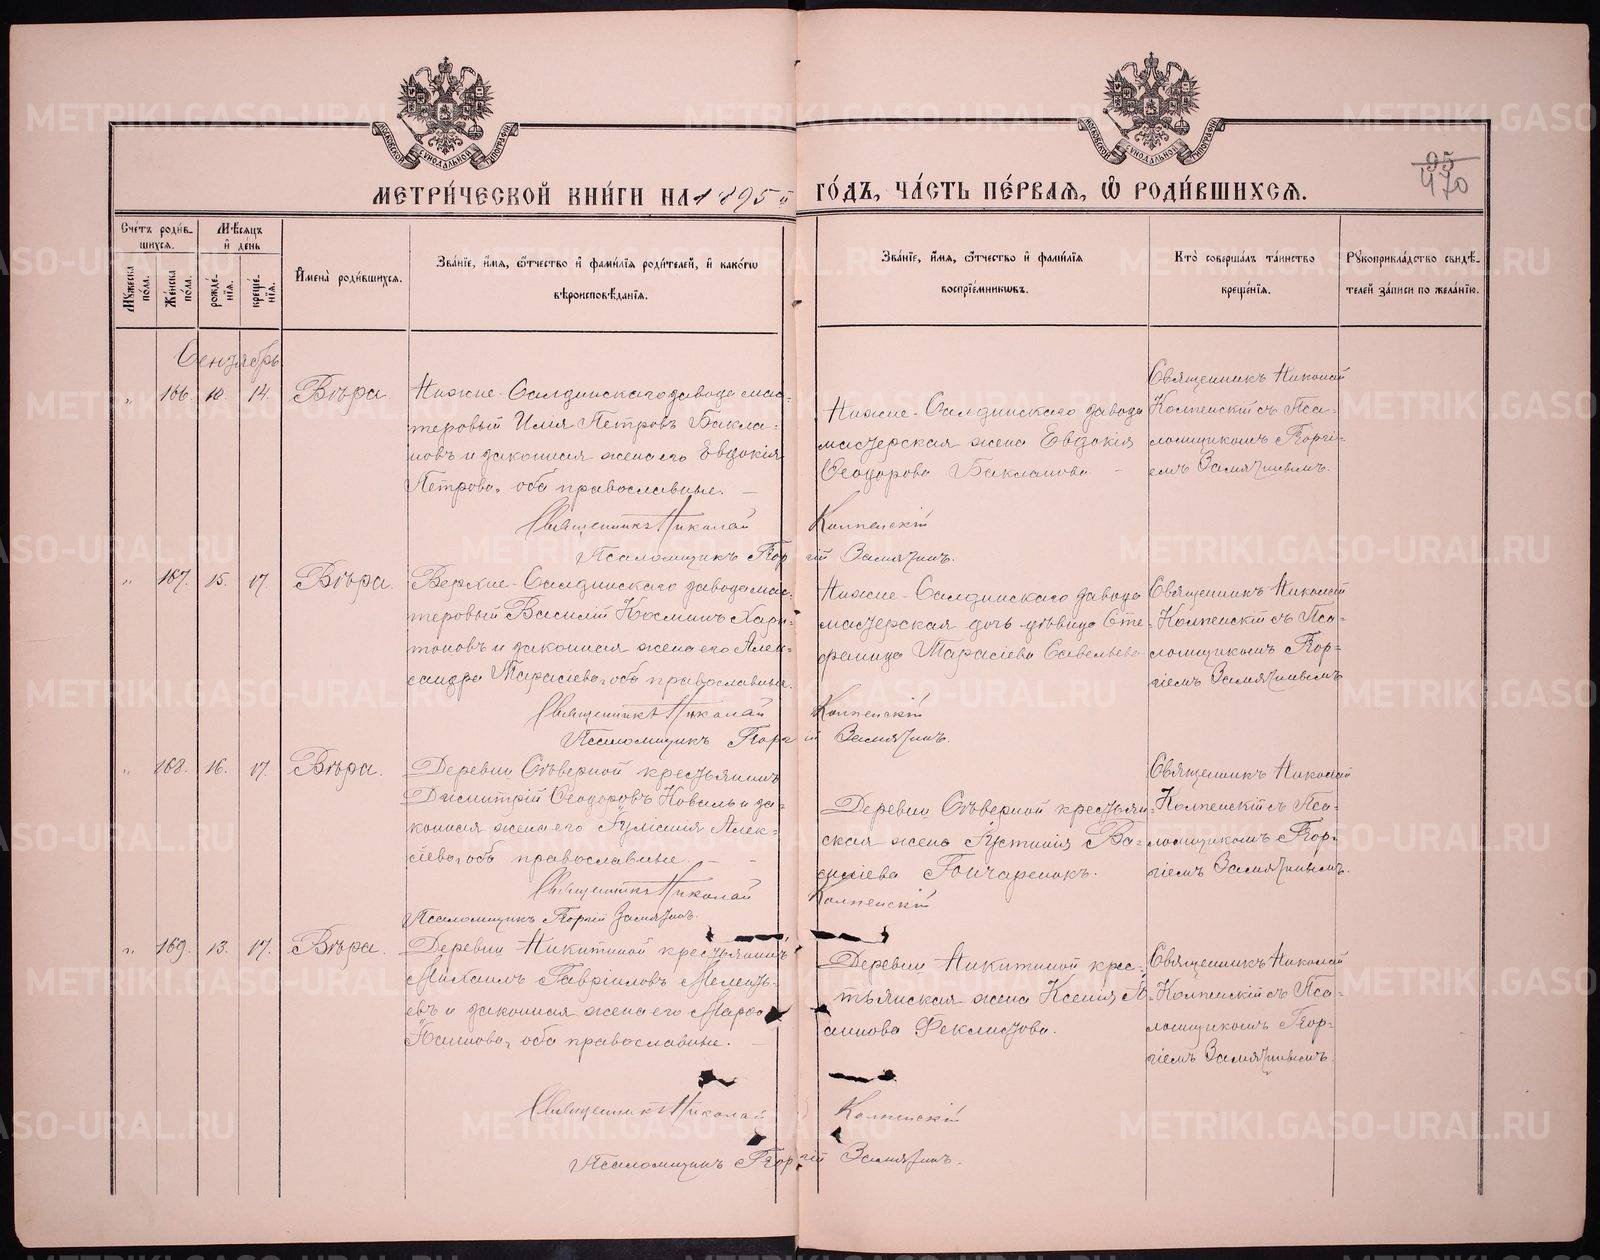 МЕТРИ́ЧЕСКОЙ КНИ́ГИ НА 1895й ГО́ДЪ, ЧА́СТЬ ПЕ́РВАЯ, Ѿ РОДИ́ВШИХСЯ.
95
470
Сче́тъ роди́в-
шихся.
Мѣ́сяцъ
и҆ де́нь
Му́жеска
по́ла.
Же́нска
по́ла.
рожде́-
нїя.
креще́-
нїя.
И҆мена̀ роди́вшихся.
Зва́нїе, и҆́мя, ѻ҆́тчество и҆ фами́лїя роди́телей, и҆ како́гѡ
вѣроисповѣ́данїя.
Зва́нїе, и҆́мя, ѻ҆́тчество и҆ фами́лїя
воспрїе́мникѡвъ.
Кто̀ соверша́лъ та́инство
креще́нїя.
Рꙋкоприкла́дство свидѣ́-
телей за́писи по жела́нїю.
Сентябрь.
„ 166. 10. 14. Вѣра.
Нижне-Салдинскаго завода мас-
теровый Илія Петровъ Бакла-
новъ и законная жена его Евдокія
Петрова, оба православные.
Нижне-Салдинскаго завода
мастерская жена Евдокія
Ѳеодорова Бакланова
Священникъ Николай
Колпенскій съ Пса-
ломщикомъ Георгі-
емъ Замятнинымъ.
Священникъ Николай Колпенскій
Псаломщикъ Георгій Замятнинъ.
„ 167. 15. 17. Вѣра.
Верхне-Салдинскаго завода мас-
теровый Василій Косминъ Хари-
тоновъ и законная жена его Алек-
сандра Тарасіева, оба православные.
Нижне-Салдинскаго завода
мастерская дочь дѣвица Сте-
фанида Тарасіева Савельева
Священникъ Николай
Колпенскій съ Пса-
ломщикомъ Геор-
гіемъ Замятнинымъ
Священникъ Николай Колпенскій
Псаломщикъ Георгій Замятнинъ.
„ 168. 16. 17. Вѣра.
Деревни Сѣверной крестьянинъ
Димитрій Ѳеодоровъ Коваль и за-
конная жена его Іуліанія Алек-
сіева, оба православные.
Деревни Сѣверной крестьян-
ская жена Іустинія Ва-
силіева Гончаренокъ.
Священникъ Николай
Колпенскій съ Пса-
ломщикомъ Геор-
гіемъ Замятнинымъ.
Священникъ Николай Колпенскій
Псаломщикъ Георгій Замятнинъ.
„ 169. 13. 17. Вѣра.
Деревни Никитиной крестьянинъ
Михаилъ Гавріиловъ Мелентъ-
евъ и законная жена его Марѳа
оба православные.
Деревни Никитиной крес-
тьянская жена Ксенія
Феклистова.
Священникъ Николай
Колпенскій съ Пса-
ломщикомъ Геор-
гіемъ Замятнинымъ.
Священникъ Николай Колпенскій
Псаломщикъ Георгій Замятнинъ.
METRIKI.GASO-URAL.RU